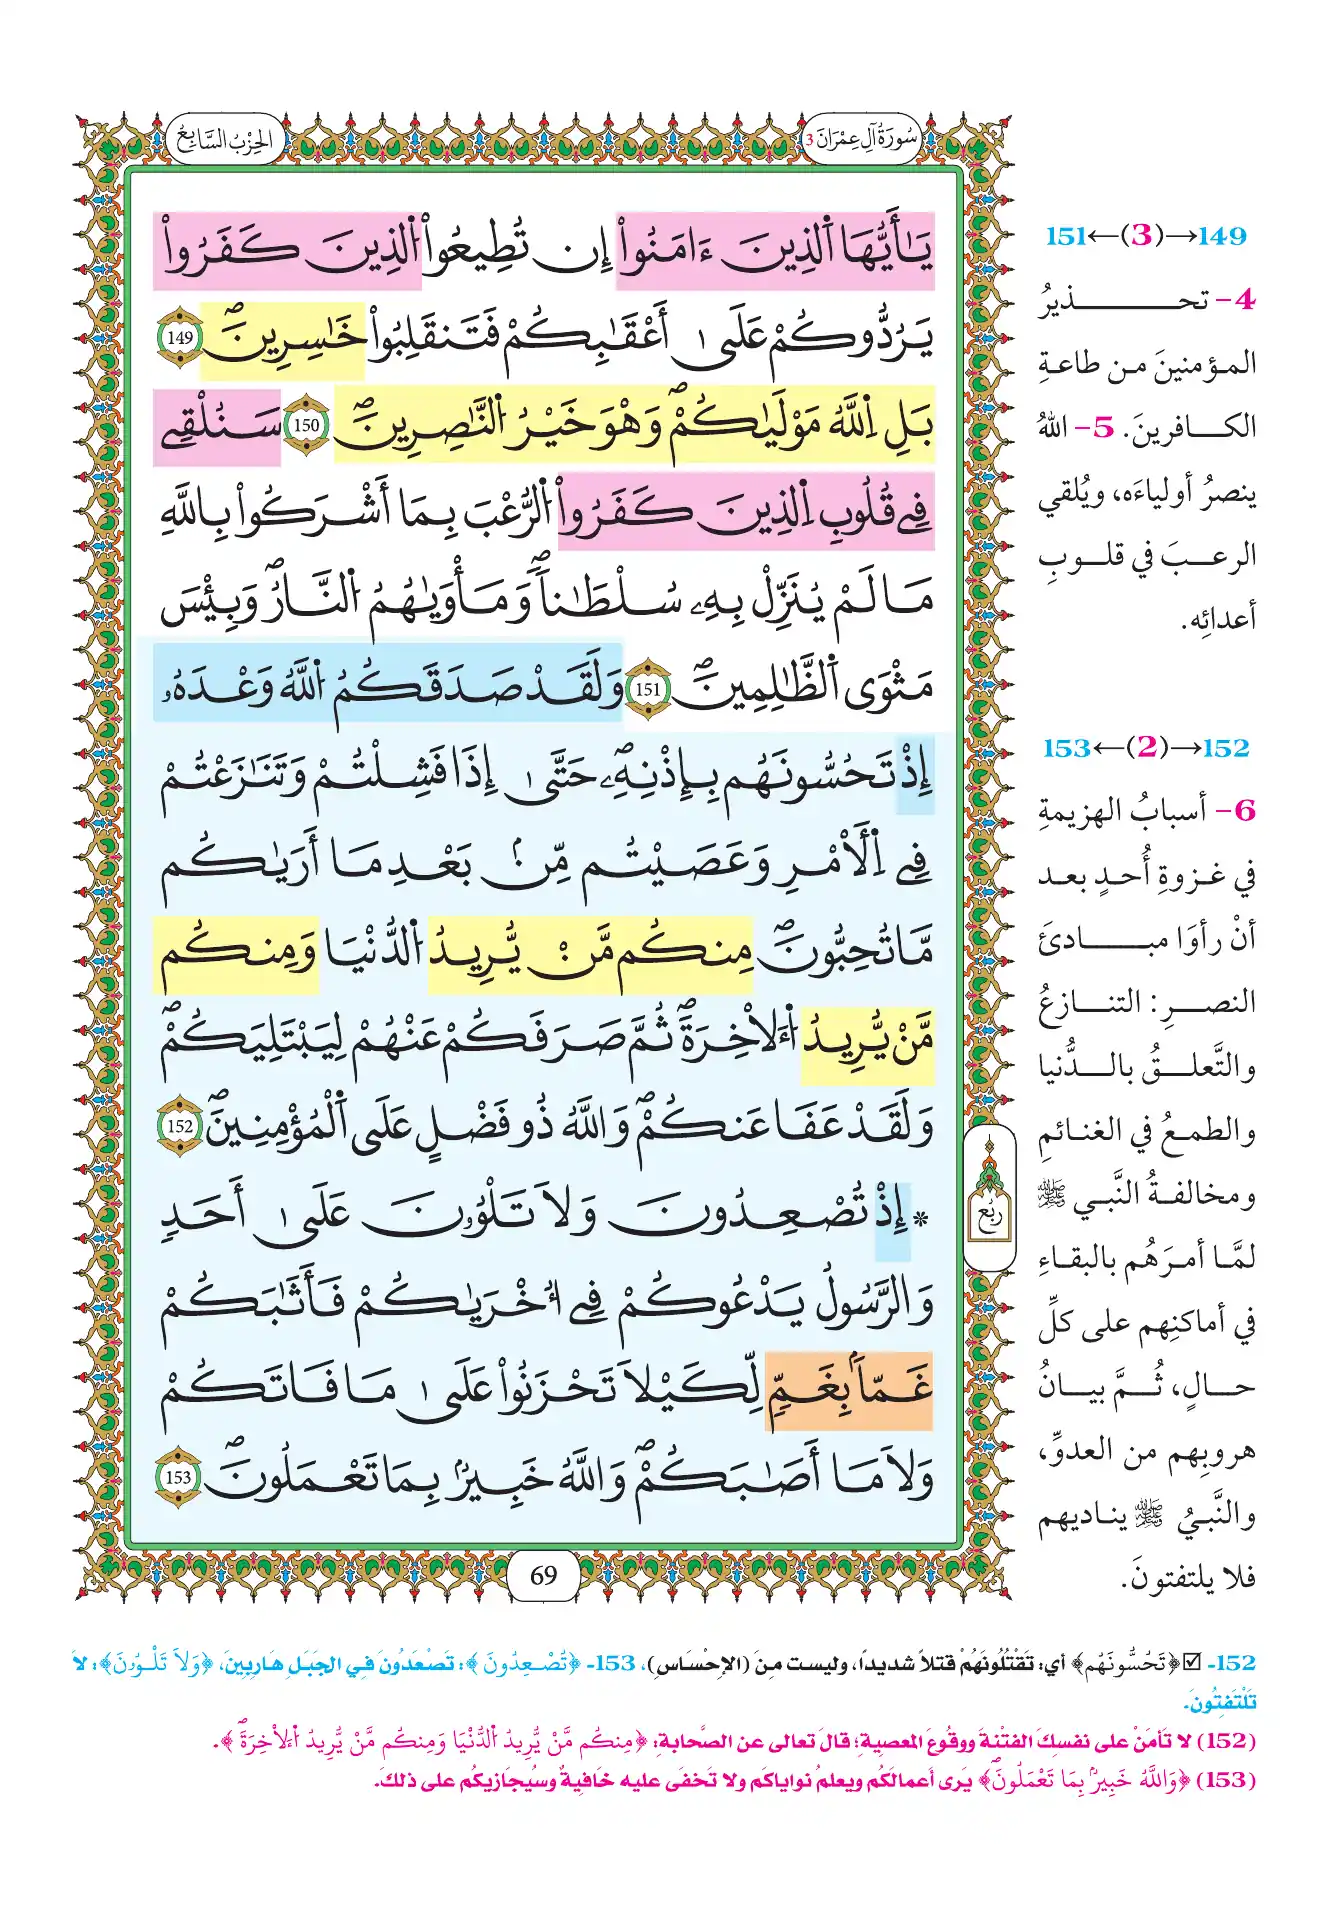 سُورَةُ آلِ عِمْرَانَ 3
الحِزْبُ السَّابِعُ
يَٰأَيُّهَا اَ۬لذِينَ ءَامَنُوٓاْ إِن تُطِيعُواْ اُ۬لذِينَ كَفَرُواْ
يَرُدُّوكُمْ عَلَىٰٓ أَعْقَٰبِكُمْ فَتَنقَلِبُواْ خَٰسِرِينَۖ 149
بَلِ اِ۬للَّهُ مَوْلَيٰكُمْۖ وَهْوَ خَيْرُ اُ۬لنَّٰصِرِينَۖ 150 سَنُلْقِے
فِے قُلُوبِ اِ۬لذِينَ كَفَرُواْ اُ۬لرُّعْبَ بِمَا أَشْرَكُواْ بِاللَّهِ
مَا لَمْ يُنَزِّلْ بِهِۦ سُلْطَٰناٗۖ وَمَأْوَيٰهُمُ اُ۬لنَّارُۖ وَبِئْسَ
مَثْوَى اَ۬لظَّٰلِمِينَۖ 151 وَلَقَدْ صَدَقَكُمُ اُ۬للَّهُ وَعْدَهُۥ
إِذْ تَحُسُّونَهُم بِإِذْنِهِۦۖ حَتَّىٰٓ إِذَا فَشِلْتُمْ وَتَنَٰزَعْتُمْ
فِے اِ۬لَامْرِ وَعَصَيْتُم مِّنۢ بَعْدِ مَا أَرَيٰكُم
مَّا تُحِبُّونَۖ مِنكُم مَّنْ يُّرِيدُ اُ۬لدُّنْيَا وَمِنكُم
مَّنْ يُّرِيدُ اُ۬لَاخِرَةَۖ ثُمَّ صَرَفَكُمْ عَنْهُمْ لِيَبْتَلِيَكُمْۖ
وَلَقَدْ عَفَا عَنكُمْۖ وَاللَّهُ ذُو فَضْلٍ عَلَى اَ۬لْمُؤْمِنِينَۖ 152
* إِذْ تُصْعِدُونَ وَلَا تَلْوُۥنَ عَلَىٰٓ أَحَدٖ
وَالرَّسُولُ يَدْعُوكُمْ فِے أُخْرَيٰكُمْ فَأَثَٰبَكُمْ
غَمّاَۢ بِغَمّٖ لِّكَيْلَا تَحْزَنُواْ عَلَىٰ مَا فَاتَكُمْ
وَلَا مَا أَصَٰبَكُمْۖ وَاللَّهُ خَبِيرُۢ بِمَا تَعْمَلُونَۖ 153
69
رُبُع
149→(3)←151
4- تحــذيرُ
المؤمنينَ من طاعةِ
الكافرينَ. 5- اللهُ
ينصرُ أولياءَه، ويُلقي
الرعبَ في قلوبِ
أعدائِه.
152→(2)←153
6- أسبابُ الهزيمةِ
في غزوةِ أُحدٍ بعد
أنْ رأوَا مبادئَ
النصرِ: التنازعُ
والتَّعلقُ بالدُّنيا
والطمعُ في الغنائمِ
ومخالفةُ النَّبي ﷺ
لمَّا أمرَهُم بالبقاءِ
في أماكنِهم على كلِّ
حالٍ، ثُمَّ بيانُ
هروبِهم من العدوِّ،
والنَّبيُ ﷺ يناديهم
فلا يلتفتونَ.
152- ☑ ﴿تَحُسُّونَهُم﴾ أي: تَقْتُلُونَهُمْ قتلاً شديداً، وليست مِنَ (الإحْسَاسِ)، 153- ﴿تُصْعِدُونَ﴾: تَصْعَدُونَ فِي الجَبَلِ هَارِبِينَ، ﴿وَلَا تَلْوُۥنَ﴾: لَا
تَلْتَفِتُونَ.
(152) لا تَأمَنْ على نفسِكَ الفتْنةَ ووقُوعَ المعصيةِ؛ قالَ تعالى عن الصَّحابةِ: ﴿مِنكُم مَّنْ يُّرِيدُ اُ۬لدُّنْيَا وَمِنكُم مَّنْ يُّرِيدُ اُ۬لَاخِرَةَۖ﴾.
(153) ﴿وَاللَّهُ خَبِيرُۢ بِمَا تَعْمَلُونَۖ﴾ يَرى أَعمالَكُم ويعلمُ نواياكم ولا تَخفَى عليه خَافيةٌ وسيُجازيكُم على ذلكَ.